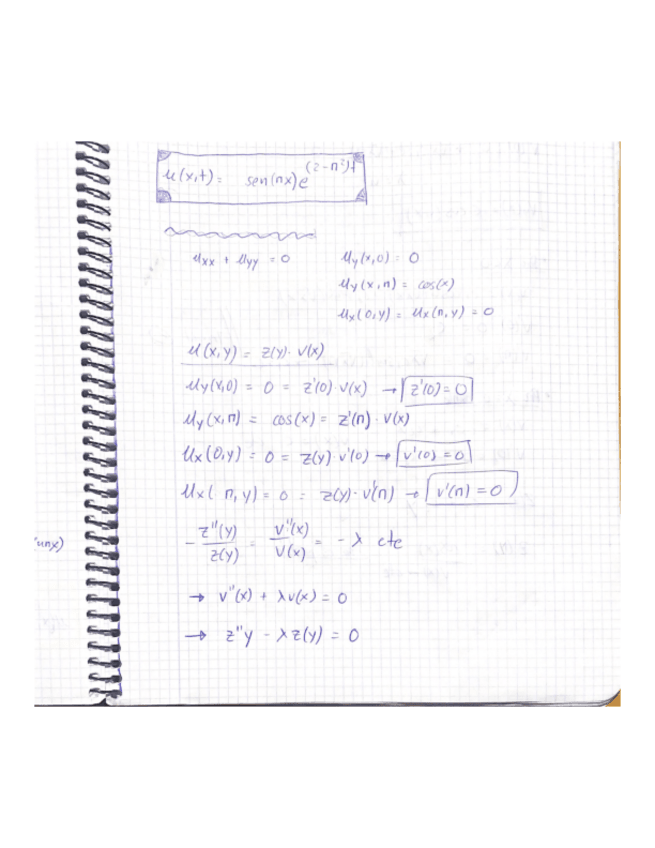 u(x,t) = sen(nx)e^(2-n²)t
u_xx + u_yy = 0    u_y(x,0) = 0
u_y(x,π) = cos(x)
u_x(0,y) = u_x(π,y) = 0
u(x,y) = z(y)·v(x)
u_y(x,0) = 0 = z'(0)·v(x) → z'(0) = 0
u_y(x,π) = cos(x) = z'(π)·v(x)
u_x(0,y) = 0 = z(y)·v'(0) → v'(0) = 0
u_x(π,y) = 0 = z(y)·v'(π) → v'(π) = 0
- z''(y)/z(y) = v''(x)/v(x) = -λ cte
→ v''(x) + λv(x) = 0
→ z''y - λz(y) = 0